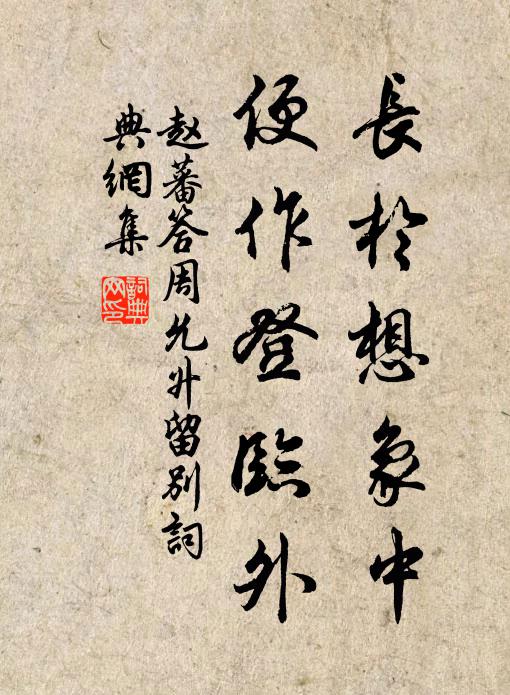 長於想象中
便作登臨外
赵蕃答周允升留别詞
典網集
詞典
网印